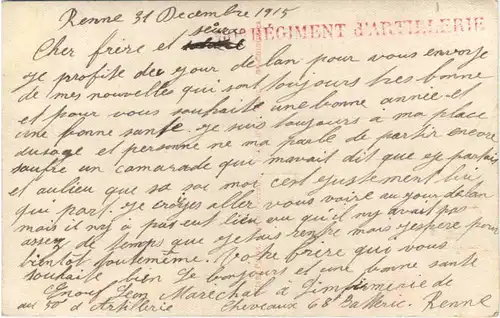 Renne 31 Decembre 1915
RÉGIMENT d'ARTILLERIE
Cher frère et
je profite du jour de lan pour vous envoyé
de mes nouvelles qui sont toujours tres bonne
et pour vous souhaité une bonne année et
une bonne santé. je suis toujours a ma place
et personne ne ma parlé de partir encore
un camarade qui mavait dit que je partais
et aulieu que sa soi moi cest justement lui
qui part. je croyes aller vous voire au jour de lan
mais il naj a pas eut lieu vu qu'il ny avait pas
assez de temps que jetais rentré mais j'espere pour
bientot toutememe. Votre frère qui vous
souhaite bien le bonjours et une bonne santé
Enouf Léon Maréchal à l'infirmerie de
au 50e d'Artillerie Cheveaux 68e Batterie. Renne